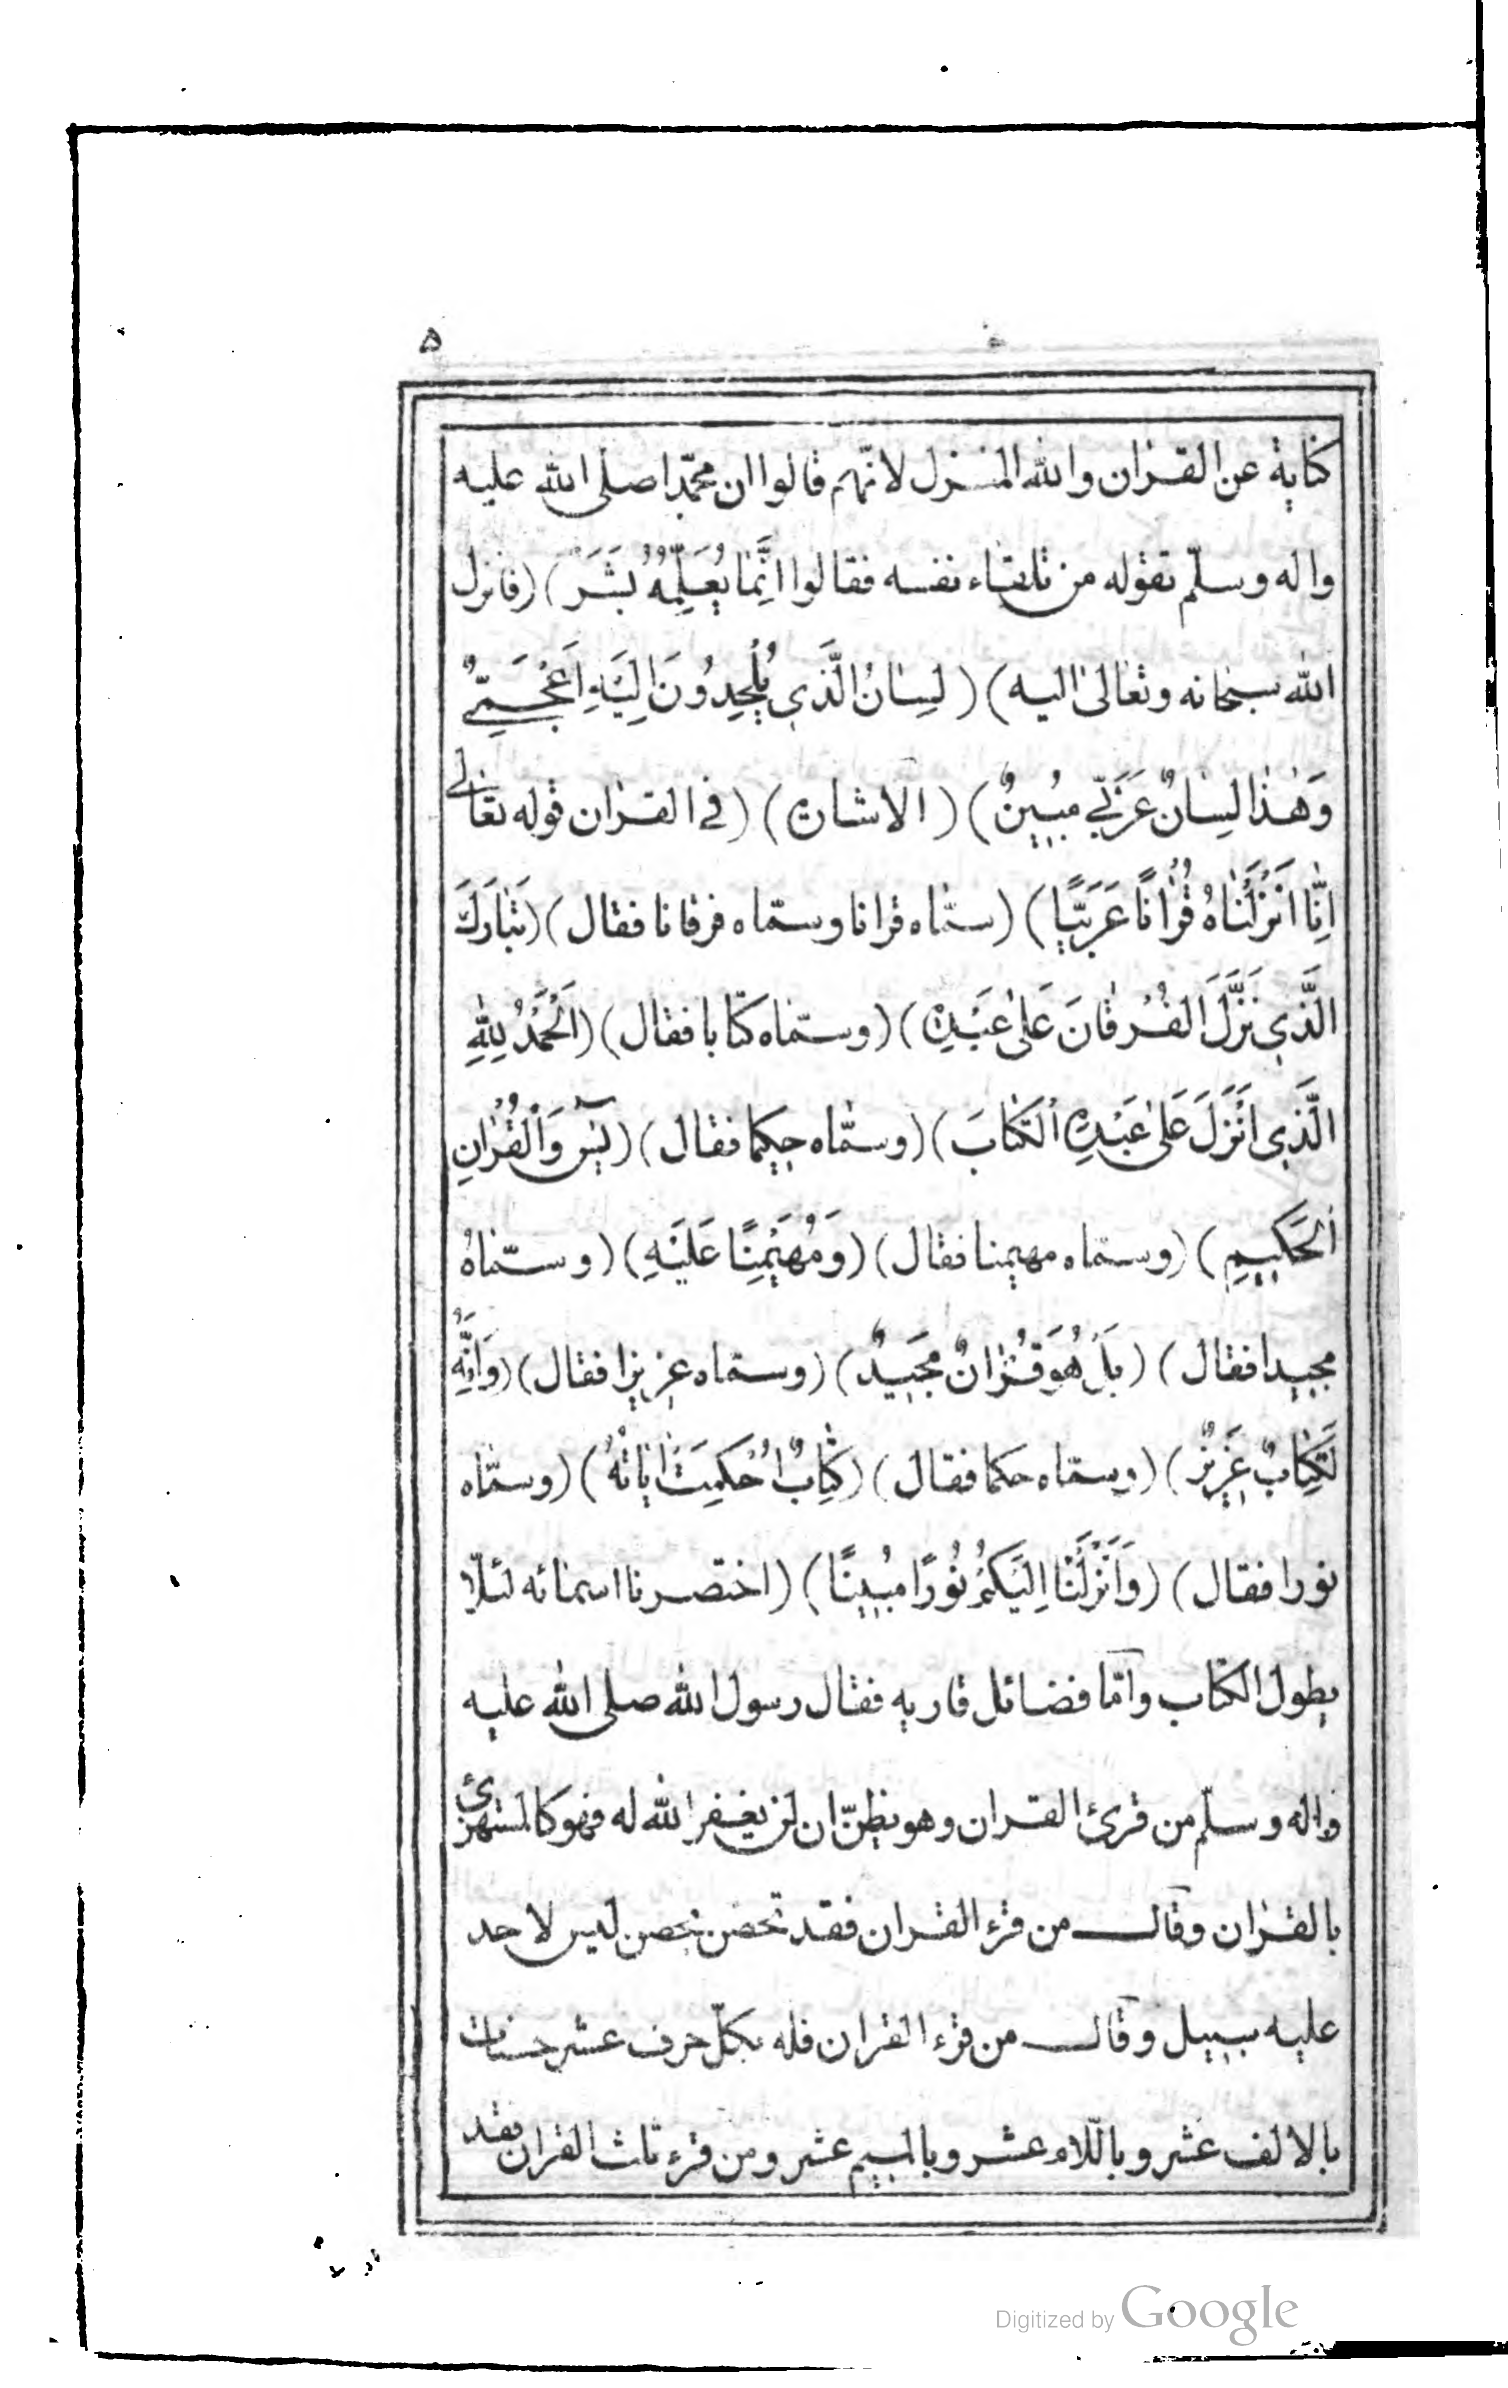 ۵
كناية عن القران والله المنزل لانّهم قالوا ان محمّدا صلى الله عليه
واله وسلّم تقوله من تلقاء نفسه فقالوا اِنَّمَا يُعَلِّمُهُ بَشَرٌ) (فانزل
الله سبحانه وتعالى اليه) (لِسانُ الَّذي يُلْحِدُونَ اِلَيْهِ اَعْجَمِيٌّ
وَهٰذا لِسٰانٌ عَرَبِيٌّ مُبينٌ) (الاشارة) (في القران قوله تعالى
اِنّٰا اَنْزَلْنٰاهُ قُرْاٰنًا عَرَبِيًّا) (سمّاه قرانا وسمّاه فرقانا فقال) (تَبٰارَكَ
الَّذي نَزَّلَ الْفُرْقٰانَ عَلىٰ عَبْدِهِ) (وسمّاه كتابا فقال) (اَلْحَمْدُ لِلّٰهِ
الَّذي اَنْزَلَ عَلىٰ عَبْدِهِ الْكِتٰابَ) (وسمّاه حكيما فقال) (يٰسٓ وَالْقُرْاٰنِ
الْحَكيمِ) (وسماه مهيمنا فقال) (وَمُهَيْمِنًا عَلَيْهِ) (وسمّاهُ
مجيدا فقال) (بَلْ هُوَ قُرْاٰنٌ مَجيدٌ) (وسماه عزيزا فقال) (وَاِنَّهُ
لَكِتٰابٌ عَزيزٌ) (وسمّاه حكما فقال) (كِتٰابٌ اُحْكِمَتْ اٰيٰاتُهُ) (وسمّاه
نورا فقال) (وَاَنْزَلْنٰا اِلَيْكُمْ نُورًا مُبينًا) (اختصرنا اسمائه لئلّا
يطول الكتاب وامّا فضائل قاريه فقال رسول الله صلى الله عليه
واله وسلّم من قرئ القران وهو يظنّ ان لن يغفر الله له فهو كالمستهزئ
بالقران وقال من قرء القران فقد تحصن بحصن ليس لاحد
عليه سبيل وقال من قرء القران فله بكلّ حرف عشر حسنات
بالالف عشر وباللّام عشر وبالميم عشر ومن قرء ثلث القران فقد
Digitized by Google